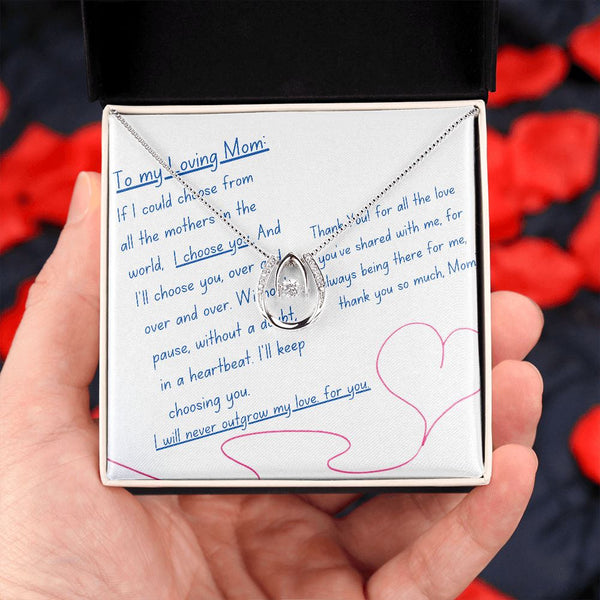 To my Loving Mom:
If I could choose from
all the mothers in the
world, I choose you. And
I'll choose you, over
over and over. Without
pause, without a doubt,
in a heartbeat. I'll keep
choosing you.
I will never outgrow my love for you.
Thank you! for all the love
you've shared with me, for
always being there for me,
thank you so much, Mom